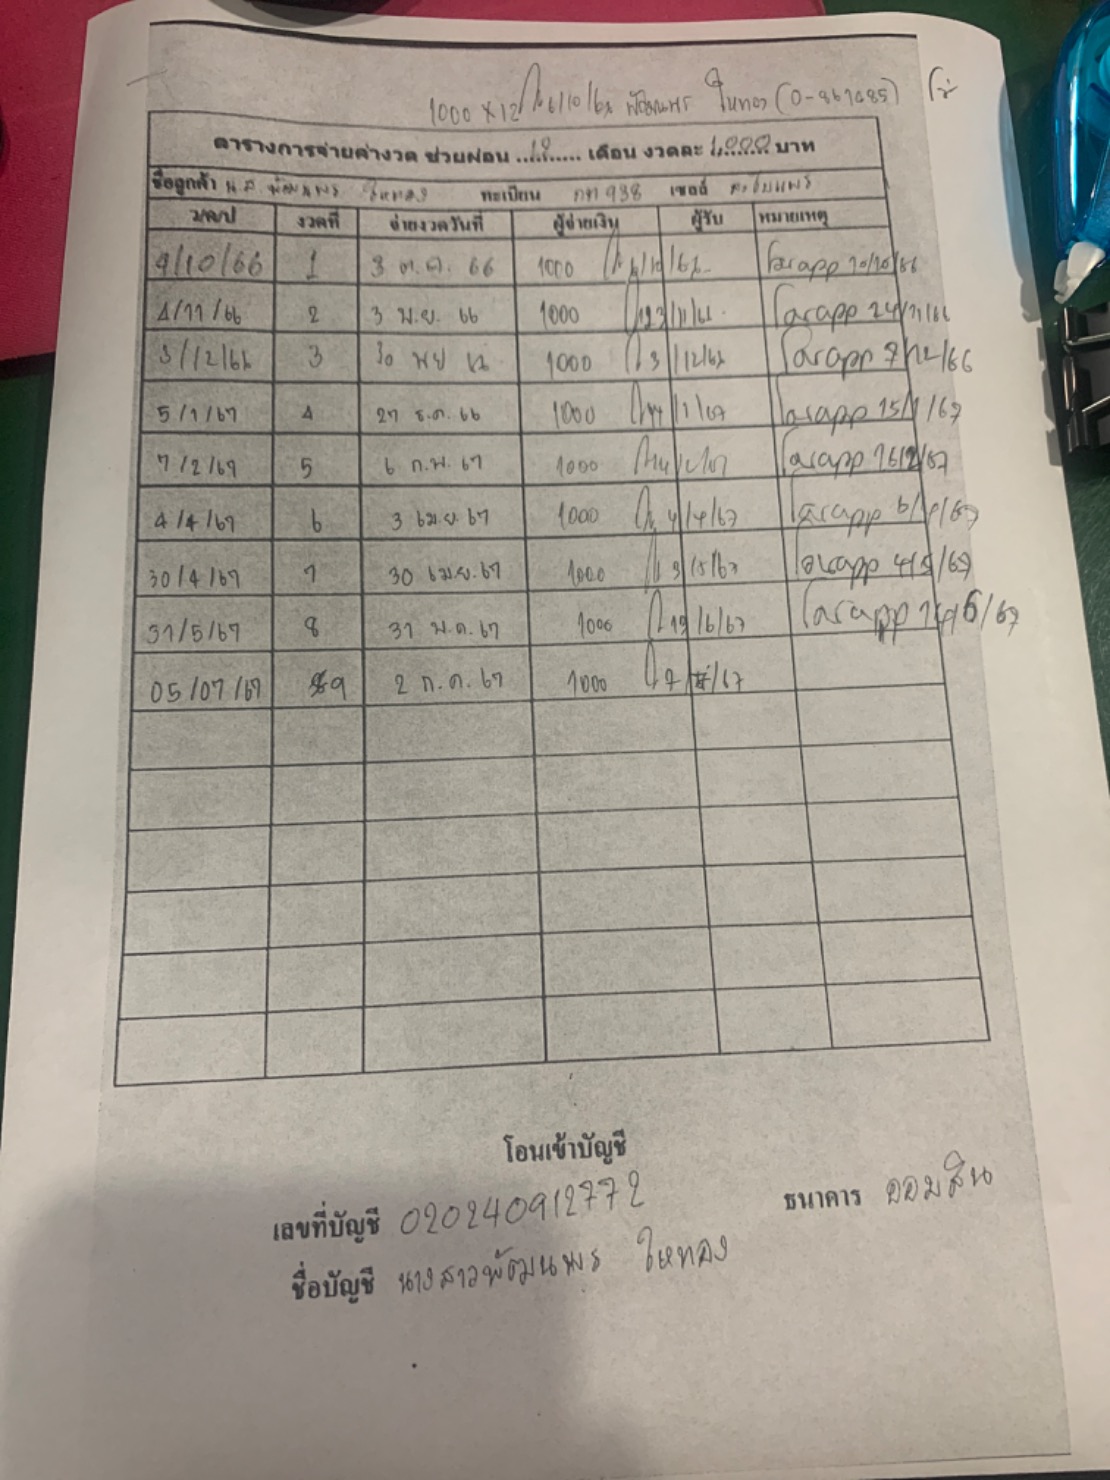 1000 x 12 6/10/66 พัฒนพร ใบทอง (0-867485)
ตารางการจ่ายค่างวด ช่วยผ่อน ...12... เดือน งวดละ 1,000 บาท
ชื่อลูกค้า น.ส. พัฒนพร ใบทอง ทะเบียน กท 938 เซลล์
ว/ด/ป งวดที่ จ่ายงวดวันที่ ผู้จ่ายเงิน ผู้รับ หมายเหตุ
4/10/66 1 3 ต.ค. 66 1000 โอนapp 10/10/66
4/11/66 2 3 พ.ย. 66 1000 23/11/66 โอนapp 24/11/66
3/12/66 3 30 พย 66 1000 3/12/66 โอนapp 7/12/66
5/1/67 4 27 ธ.ค. 66 1000 14/1/67 โอนapp 15/1/67
7/2/67 5 6 ก.พ. 67 1000 14/2/67 โอนapp 16/2/67
4/4/67 6 3 เม.ย. 67 1000 4/4/67 โอนapp 6/4/67
30/4/67 7 30 เมย. 67 1000 3/5/67 โอนapp 4/5/67
31/5/67 8 31 พ.ค. 67 1000 12/6/67 โอนapp 14/6/67
05/07/67 9 2 ก.ค. 67 1000
โอนเข้าบัญชี
เลขที่บัญชี 020240912772 ธนาคาร ออมสิน
ชื่อบัญชี นางสาวพัฒนพร ใบทอง